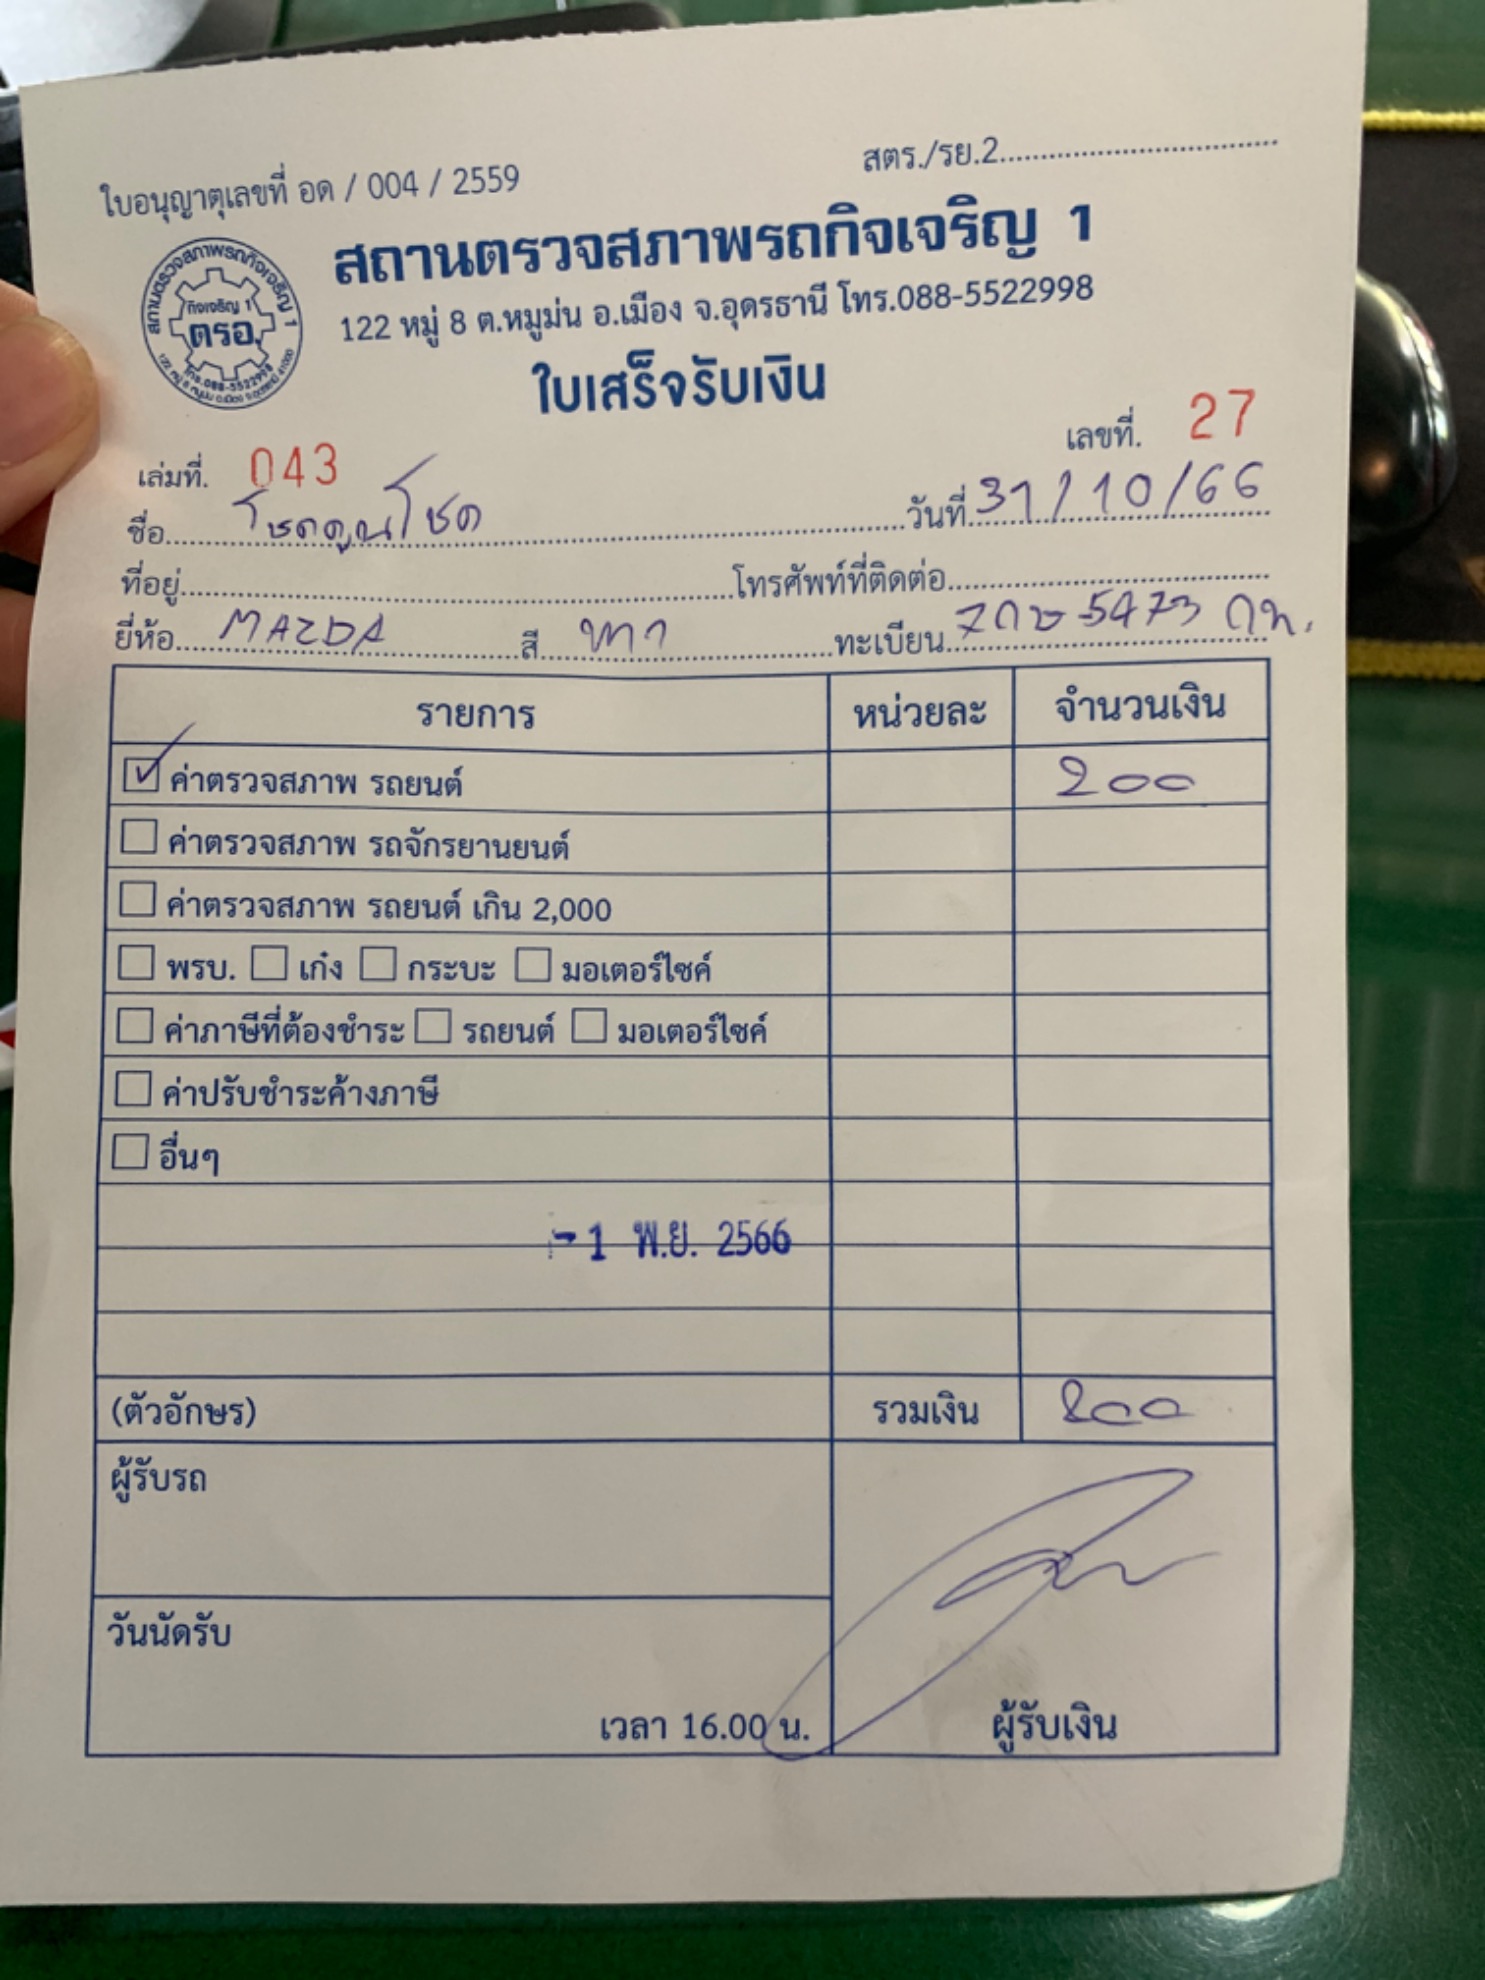 สตร./รย.2
ใบอนุญาตุเลขที่ อด / 004 / 2559
สถานตรวจสภาพรถกิจเจริญ 1
122 หมู่ 8 ต.หมูม่น อ.เมือง จ.อุดรธานี โทร.088-5522998
สถานตรวจสภาพรถกิจเจริญ 1
กิจเจริญ 1
ตรอ.
โทร.088-5522998
ใบเสร็จรับเงิน
เล่มที่. 043 เลขที่. 27
ชื่อ โชคคูณโชค วันที่ 31/10/66
ที่อยู่ โทรศัพท์ที่ติดต่อ
ยี่ห้อ MAZDA สี เทา ทะเบียน 5473 กท.
รายการ หน่วยละ จำนวนเงิน
ค่าตรวจสภาพ รถยนต์ 200
ค่าตรวจสภาพ รถจักรยานยนต์
ค่าตรวจสภาพ รถยนต์ เกิน 2,000
พรบ. เก๋ง กระบะ มอเตอร์ไซค์
ค่าภาษีที่ต้องชำระ รถยนต์ มอเตอร์ไซค์
ค่าปรับชำระค้างภาษี
อื่นๆ
-1 พ.ย. 2566
(ตัวอักษร) รวมเงิน 200
ผู้รับรถ
วันนัดรับ
เวลา 16.00 น. ผู้รับเงิน